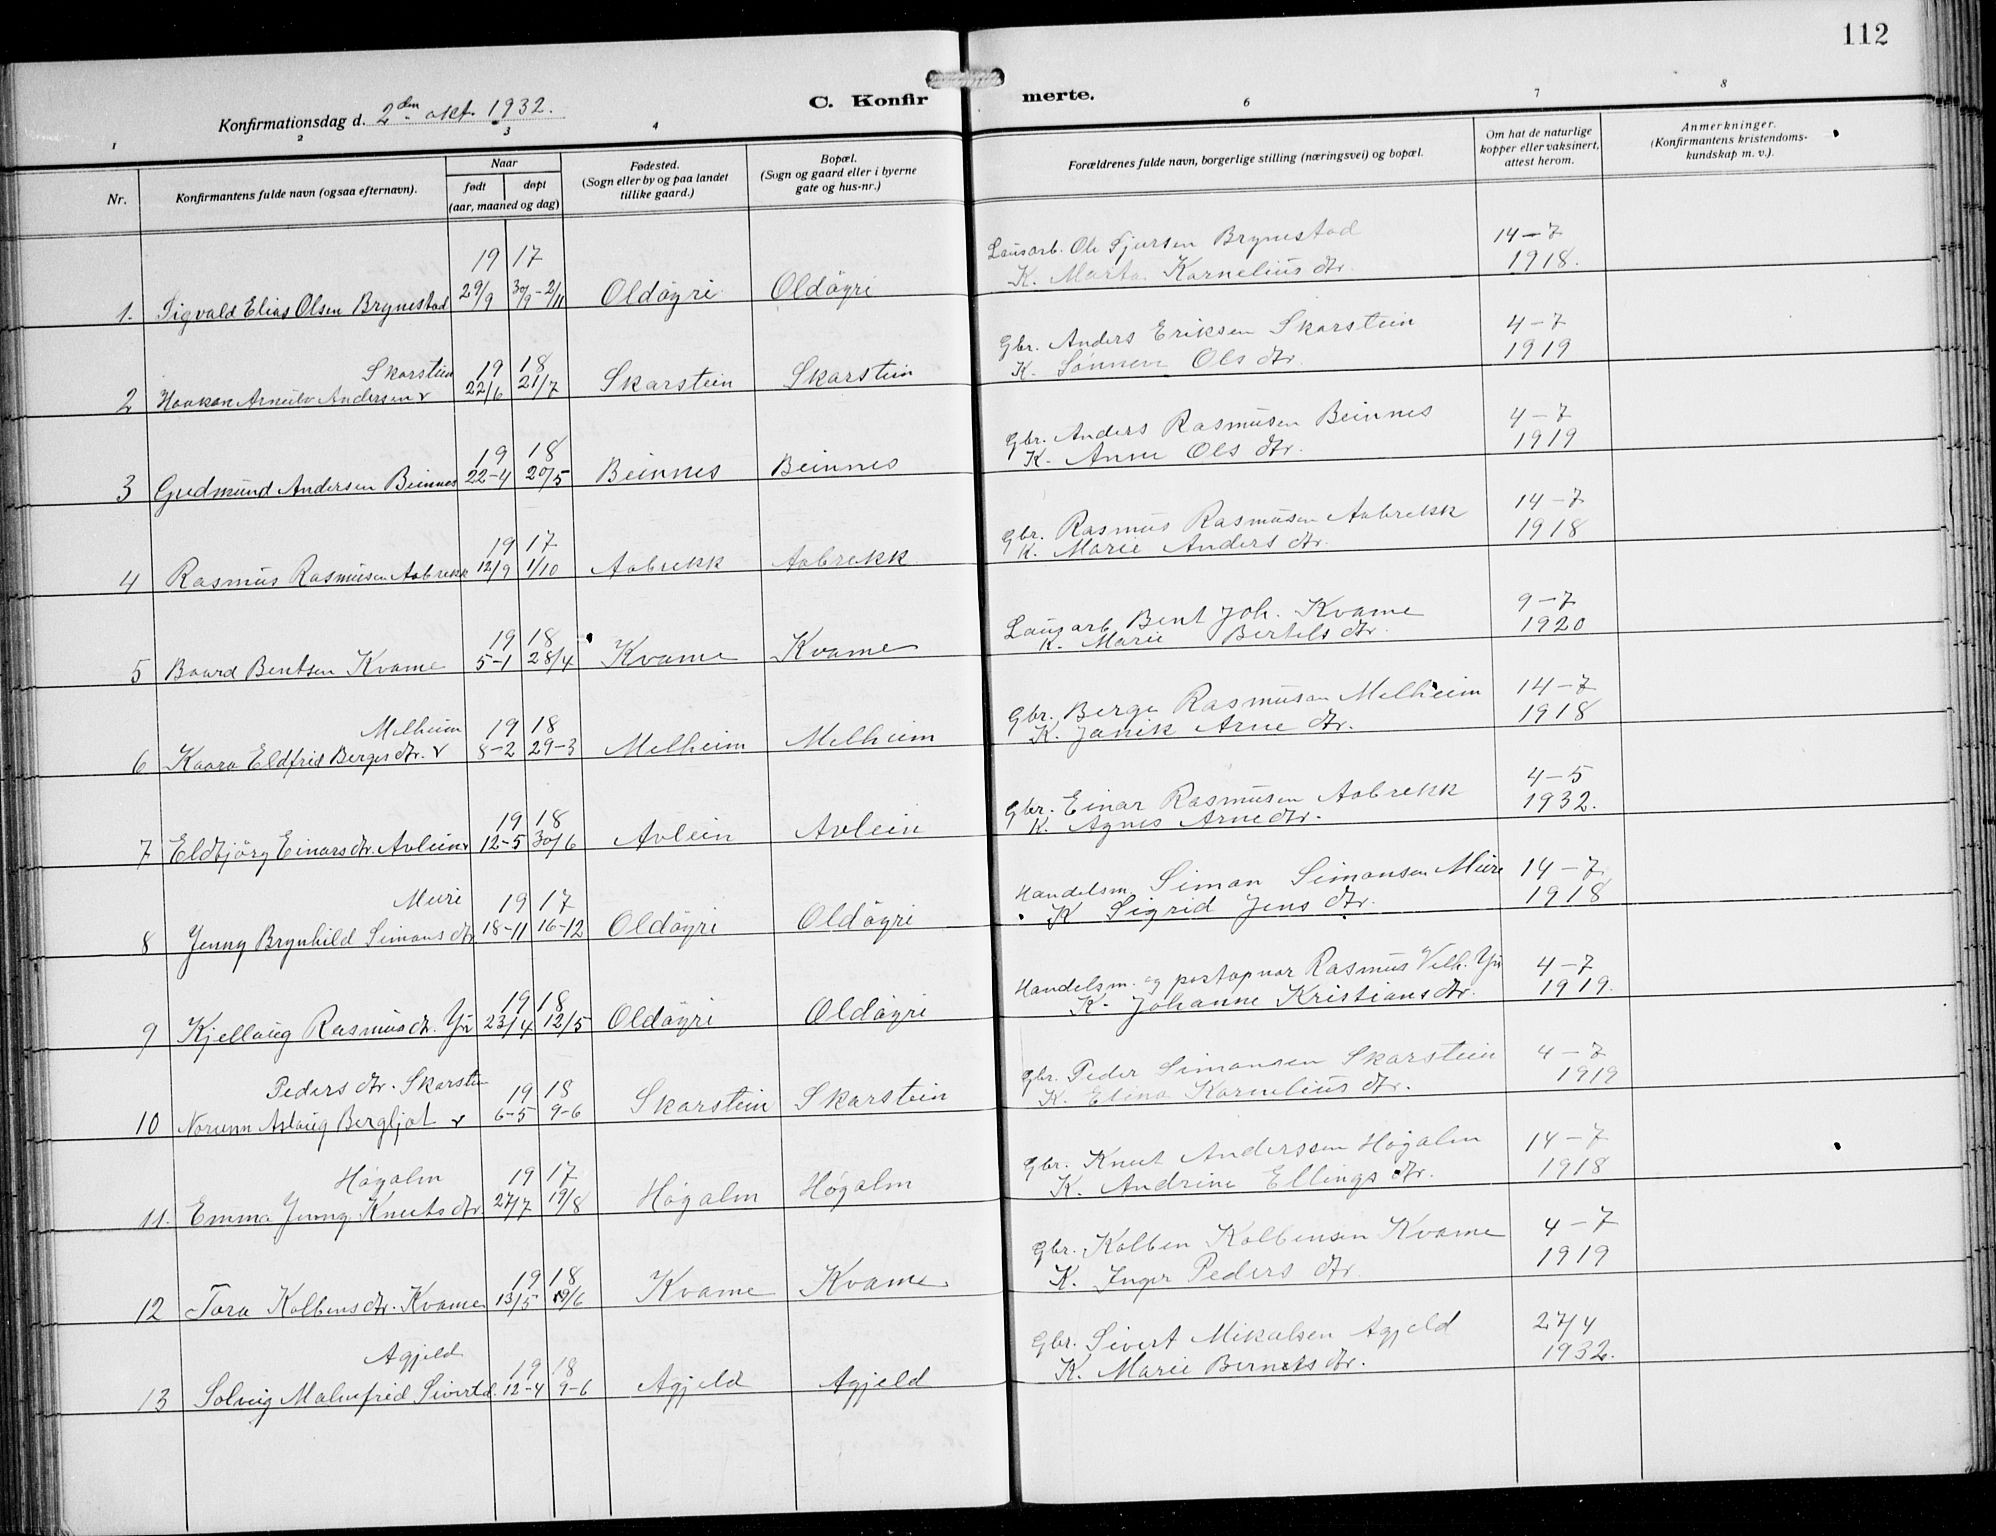 112
C. Konfirmerte.
Konfirmationsdag d. 2den okt. 1932.
1 2 3 4 6 7 8
Nr.
Konfirmantens fulde navn (ogsaa efternavn).
Naar
født døpt
(aar, maaned og dag)
Fødested.
(Sogn eller by og paa landet
tillike gaard.)
Bopæl.
(Sogn og gaard eller i byerne
gate og hus-nr.)
Forældrenes fulde navn, borgerlige stilling (næringsvei) og bopæl.
Om hat de naturlige
kopper eller vaksinert,
attest herom.
Anmerkninger.
(Konfirmantens kristendoms-
kundskap m. v.).
19 17 Lausarb. Ole Sjursen Brynestad 14-7
1. Sigvald Elias Olsen Brynestad 29/9 30/9-2/11 Oldöyri Oldöyri K. Marta Kornelius dtr. 1918.
Skarstein 19 18 Gbr. Anders Eriksen Skarstein 4-7
2 Haakon Arneilv Andersen 22/6 21/7 Skarstein Skarstein K. Sönnev Ols dtr. 1919
19 18 Gbr. Anders Rasmusen Beinnes 4-7
3 Gudmund Andersen Beinnes 22-4 20/5 Beinnes Beinnes K. Anne Ols dtr. 1919
19 17 Gbr. Rasmus Rasmusen Aabrekk 14-7
4 Rasmus Rasmusen Aabrekk 12/9 1/10 Aabrekk Aabrekk K. Marie Anders dtr. 1918
19 18 Lausarb. Bent Joh. Kvame 9-7
5 Baard Bentsen Kvame 5-1 28/4 Kvame Kvame K. Marie Bertels dtr. 1920
Melheim 19 18 Gbr. Berge Rasmusen Melheim 14-7
6 Kaara Eldfrid Berges dtr. 8-2 29-3 Melheim Melheim K. Janik Arne dtr. 1918
19 18 Gbr. Einar Rasmusen Aabrekk 4-5
7 Eldbjörg Einars dtr. Avlein 12-5 30/6 Avlein Avlein K. Agnes Arne dtr. 1932.
Muri 19 17 Handelsm. Simon Simonsen Muri 14-7
8 Jenny Brynhild Simons dtr 18-11 16-12 Oldöyri Oldöyri K Sigrid Jens dtr. 1918
19 18 Handelsm. og postopnar Rasmus Vilh. Yri 4-7
9 Kjellaug Rasmus dtr. Yri 23/4 12/5 Oldöyri Oldöyri K. Johanne Kristians dtr. 1919.
Peders dtr. Skarstein 19 18 Gbr. Peder Simonsen Skarstein 4-7
10 Norunn Aslaug Bergljot 6-5 9-6 Skarstein Skarstein K. Elina Kornelius dtr. 1919
Högalm 19 17 Gbr. Knut Anderssen Högalm 14-7
11. Emma Jenny Knuts dtr 27/7 19/8 Högalm Högalm K. Andrine Ellings dtr. 1918
19 18 Gbr. Kolben Kolbensen Kvame 4-7
12 Tora Kolbens dtr. Kvame 13/5 19/6 Kvame Kvame K. Inger Peders dtr 1919
Agjeld 19 18 Gbr. Sivert Mikalsen Agjeld 27/4
13 Solveig Malmfrid Sivertd. 12-4 9-6 Agjeld Agjeld K. Marie Bernts dtr. 1932.